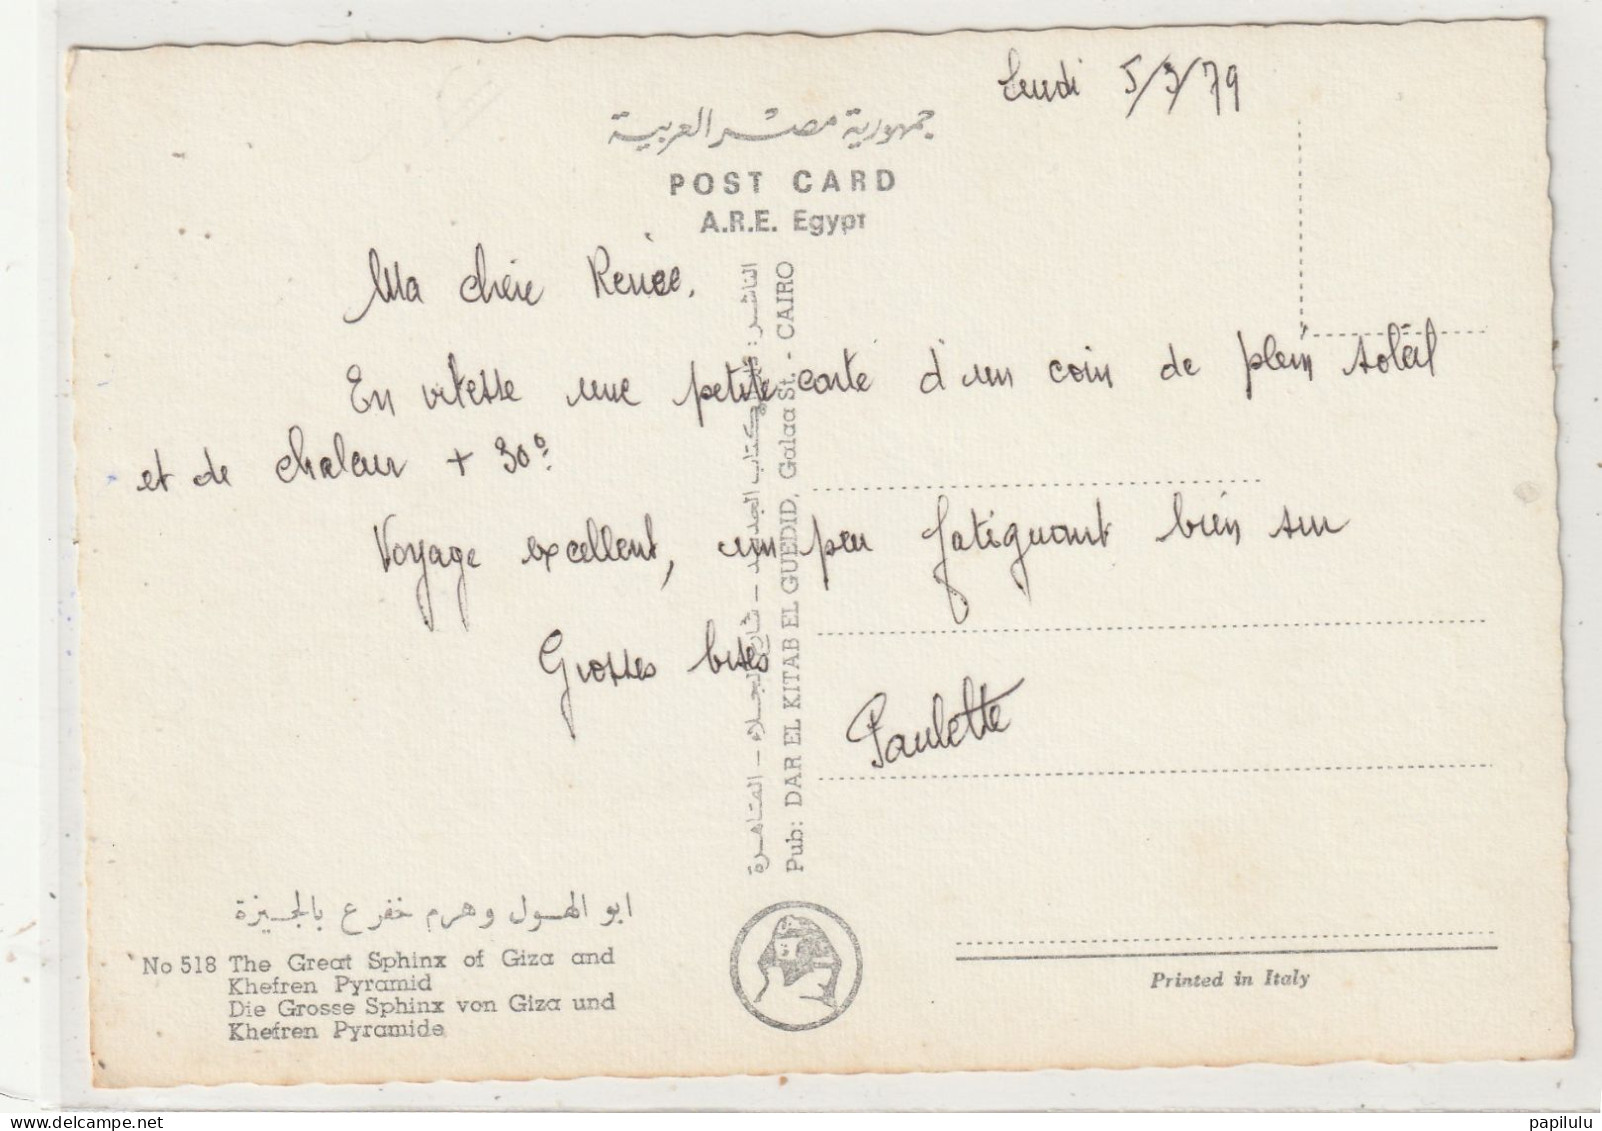 Lundi 5/3/79
جمهورية مصر العربية
POST CARD
A.R.E. Egypt
Ma chère Renée.
En vitesse une petite carte d'un coin de plein soleil
et de chaleur + 30°.
Voyage excellent, un peu fatiguant bien sur
Grosses bises
Paulette
الناشر : دار الكتاب الجديد – شارع الجلاء – القاهرة
Pub: DAR EL KITAB EL GUEDID, Galaa St. - CAIRO
ابو الهول وهرم خفرع بالجيزة
No 518 The Great Sphinx of Giza and
Khefren Pyramid
Die Grosse Sphinx von Giza und
Khefren Pyramide
Printed in Italy
papilulu